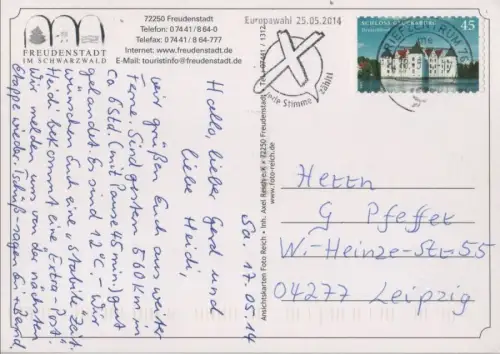 FREUDENSTADT
IM SCHWARZWALD
72250 Freudenstadt
Telefon: 0 74 41 / 8 64-0
Telefax: 0 74 41 / 8 64-777
Internet: www.freudenstadt.de
E-Mail: touristinfo@freudenstadt.de
Europawahl 25.05.2014
jede Stimme zählt
SCHLOSS GLÜCKSBURG
45
BRIEFZENTRUM 76
Sa. 17.05.14
Hallo, lieber Gerd und
liebe Heidi,
wir grüßen Euch aus weiter
Ferne. Sind gestern 560 km in
ca 6 Std. (mit Pause 45 min.) gut
gelandet. Es sind 12°C. - Wir
wünschen Euch eine stabile Zeit.
Heidi bekommt eine Extra-Post.
Wir melden uns von der nächsten
Etappe wieder. Tschüß sagen
Ansichtskarten Foto Reich • Inh. Axel Reich e.K. • 72250 Freudenstadt • Tel. 07441 / 1312
www.foto-reich.de
Herrn
G Pfeffer
W.-Heinze-Str. 55
04277 Leipzig